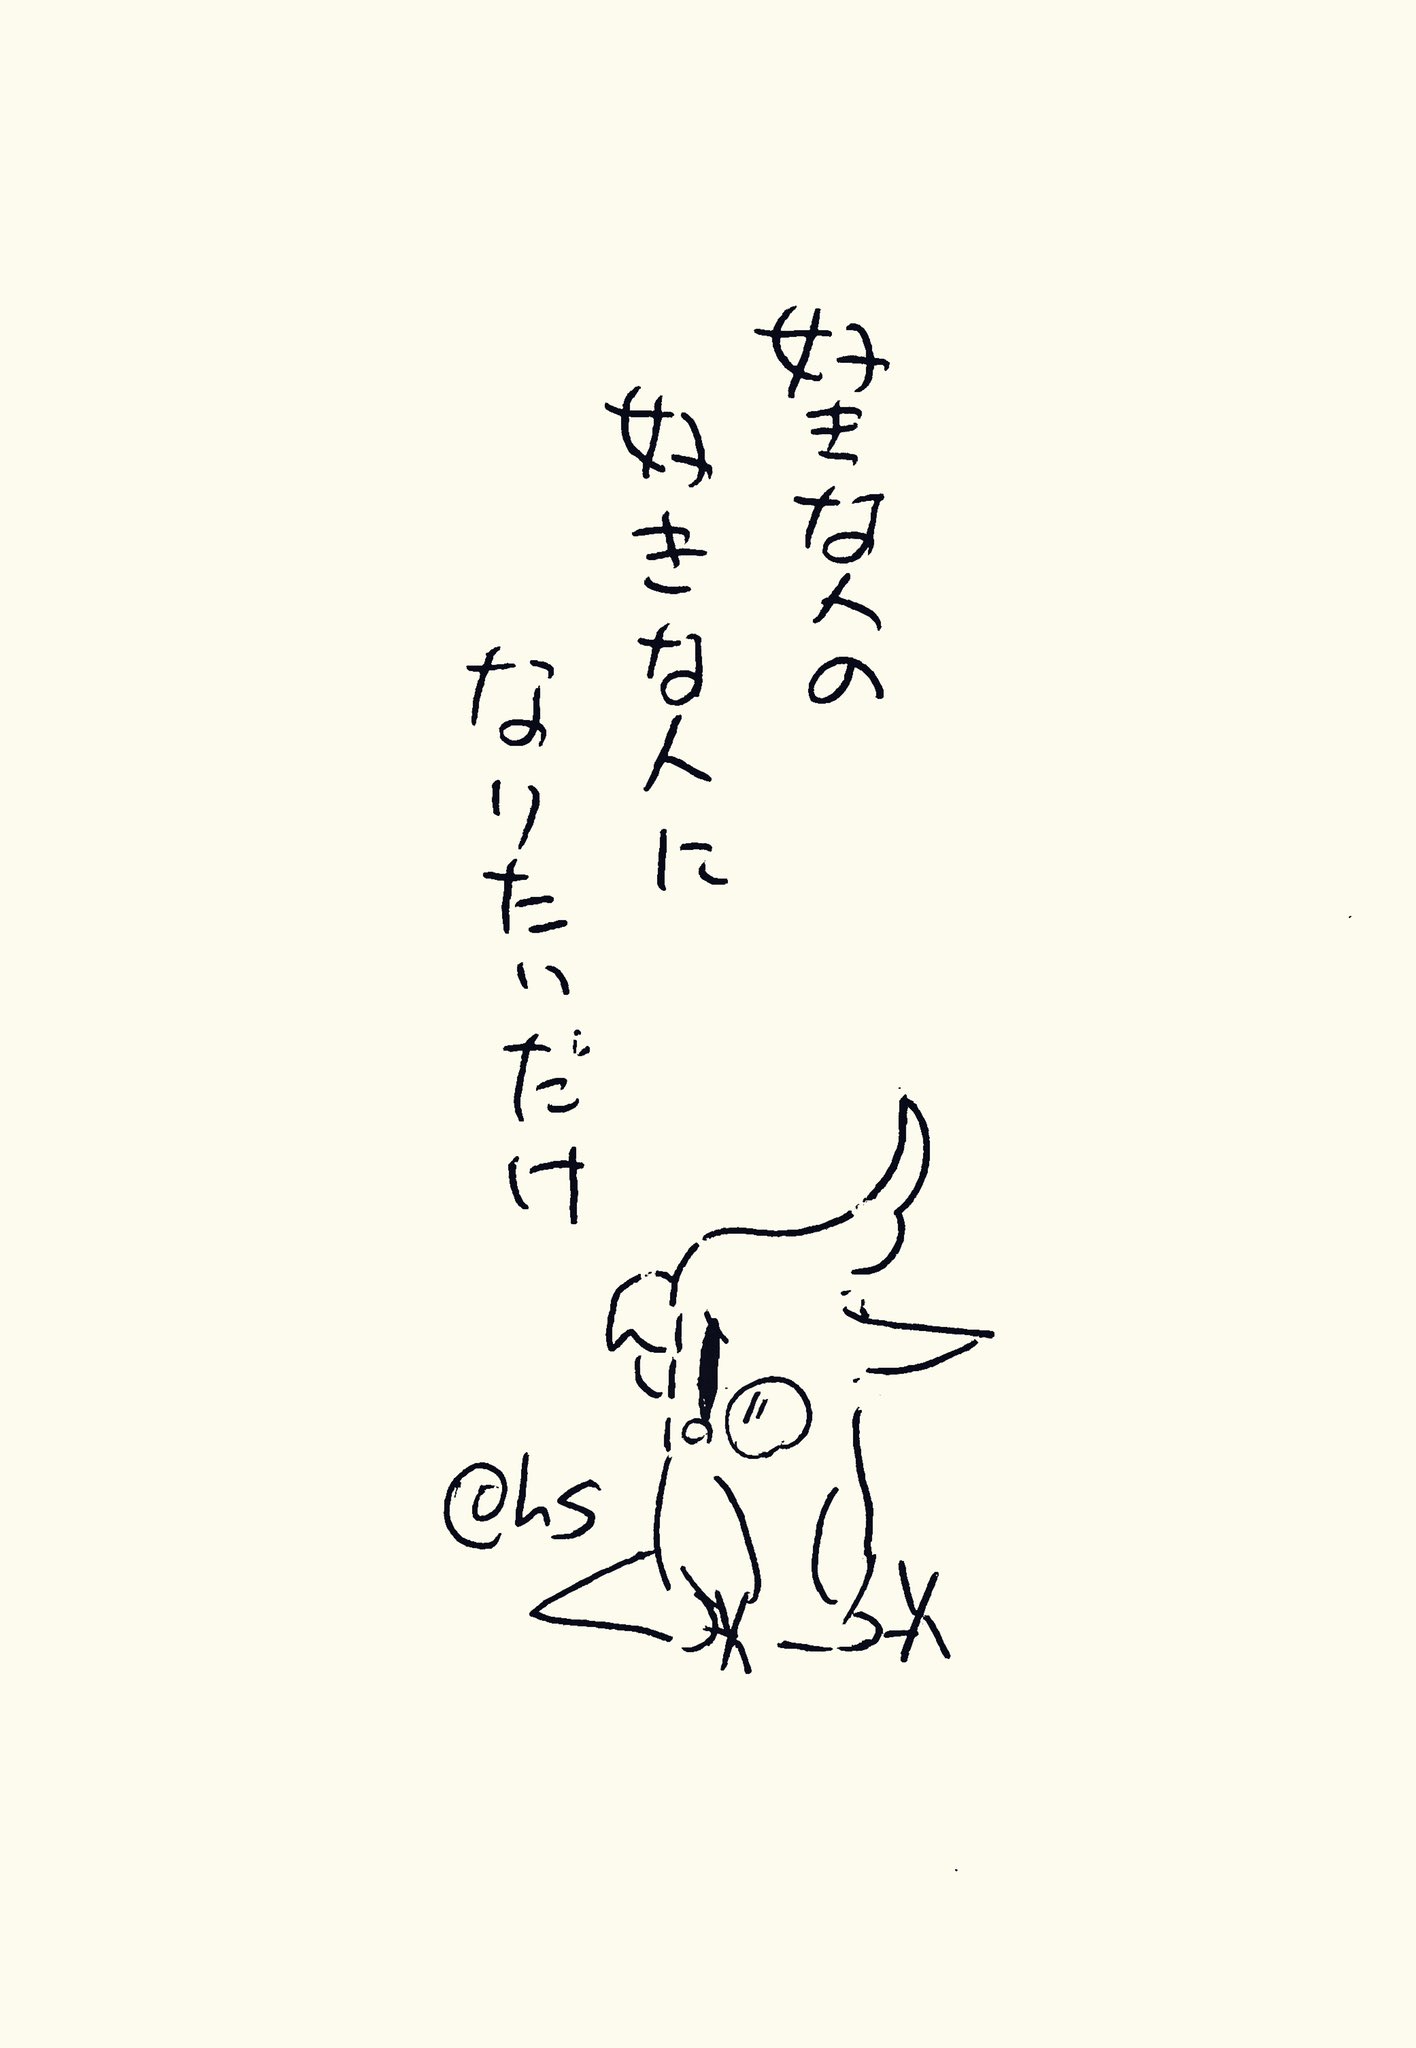 好きな人の
好きな人に
なりたいだけ
@hs